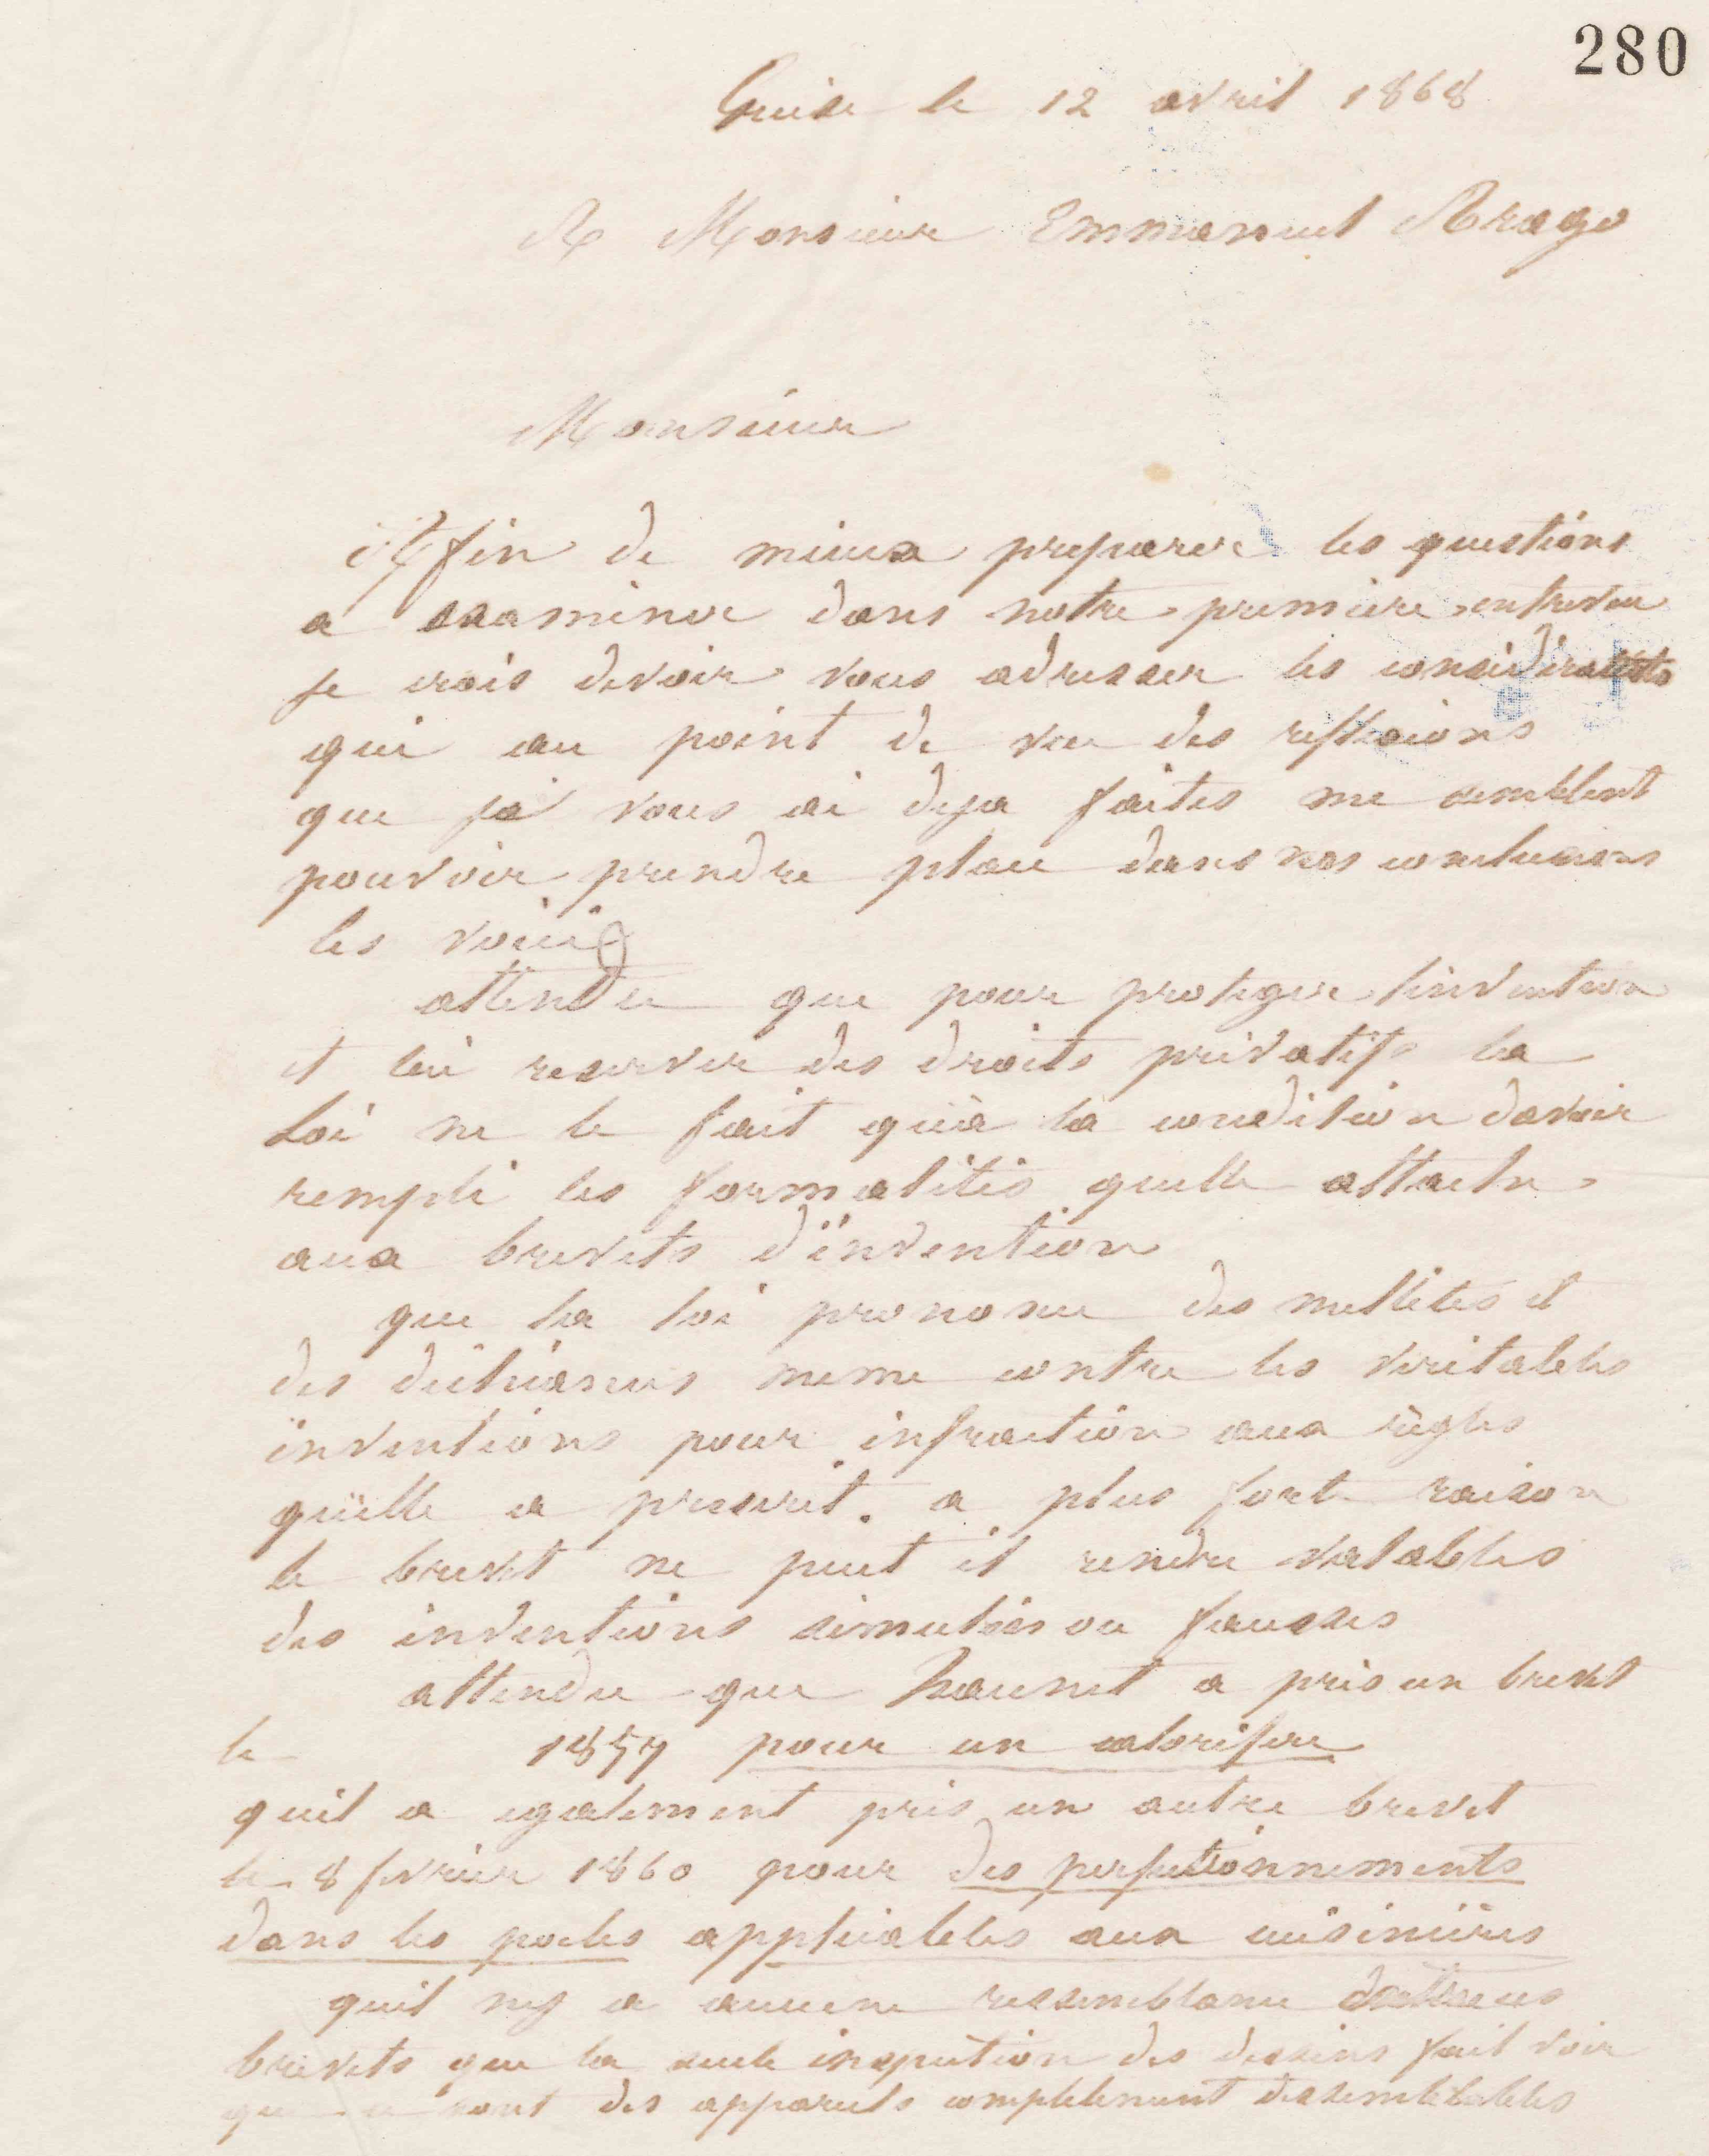 280
Guise le 12 avril 1868
A Monsieur Emmanuel Arago
Monsieur
Affin de mieux preparer les questions
a examiner dans notre premiere entrevue
je crois devoir vous adresser les considérants
qui au point de vue des reflexions
que je vous ai deja faites me semblent
pouvoir prendre place dans vos conclusions
les voici
attendu que pour proteger linvention
et lui reserver des droits privatifs la
Loi ne le fait qu'à la condition davoir
rempli les formalités quelle attache
aux brevets d'invention
que la loi prononce des nullites et
des decheances meme contre les veritables
inventions pour infraction aux règles
qu'elle a prescrit. a plus forte raison
le brevet ne peut il rendre valables
des inventions simulées ou fausses
attendu que a pris un brevet
le 1857 pour un calorifere
quil a egalement pris un autre brevet
le 8 fevrier 1860 pour des perfectionnements
dans les poeles applicables aux cuisinières
quil ny a aucune ressemblance
brevets que la seule inspection des dessins fait voir
que ce sont des appareils completement dessemblables